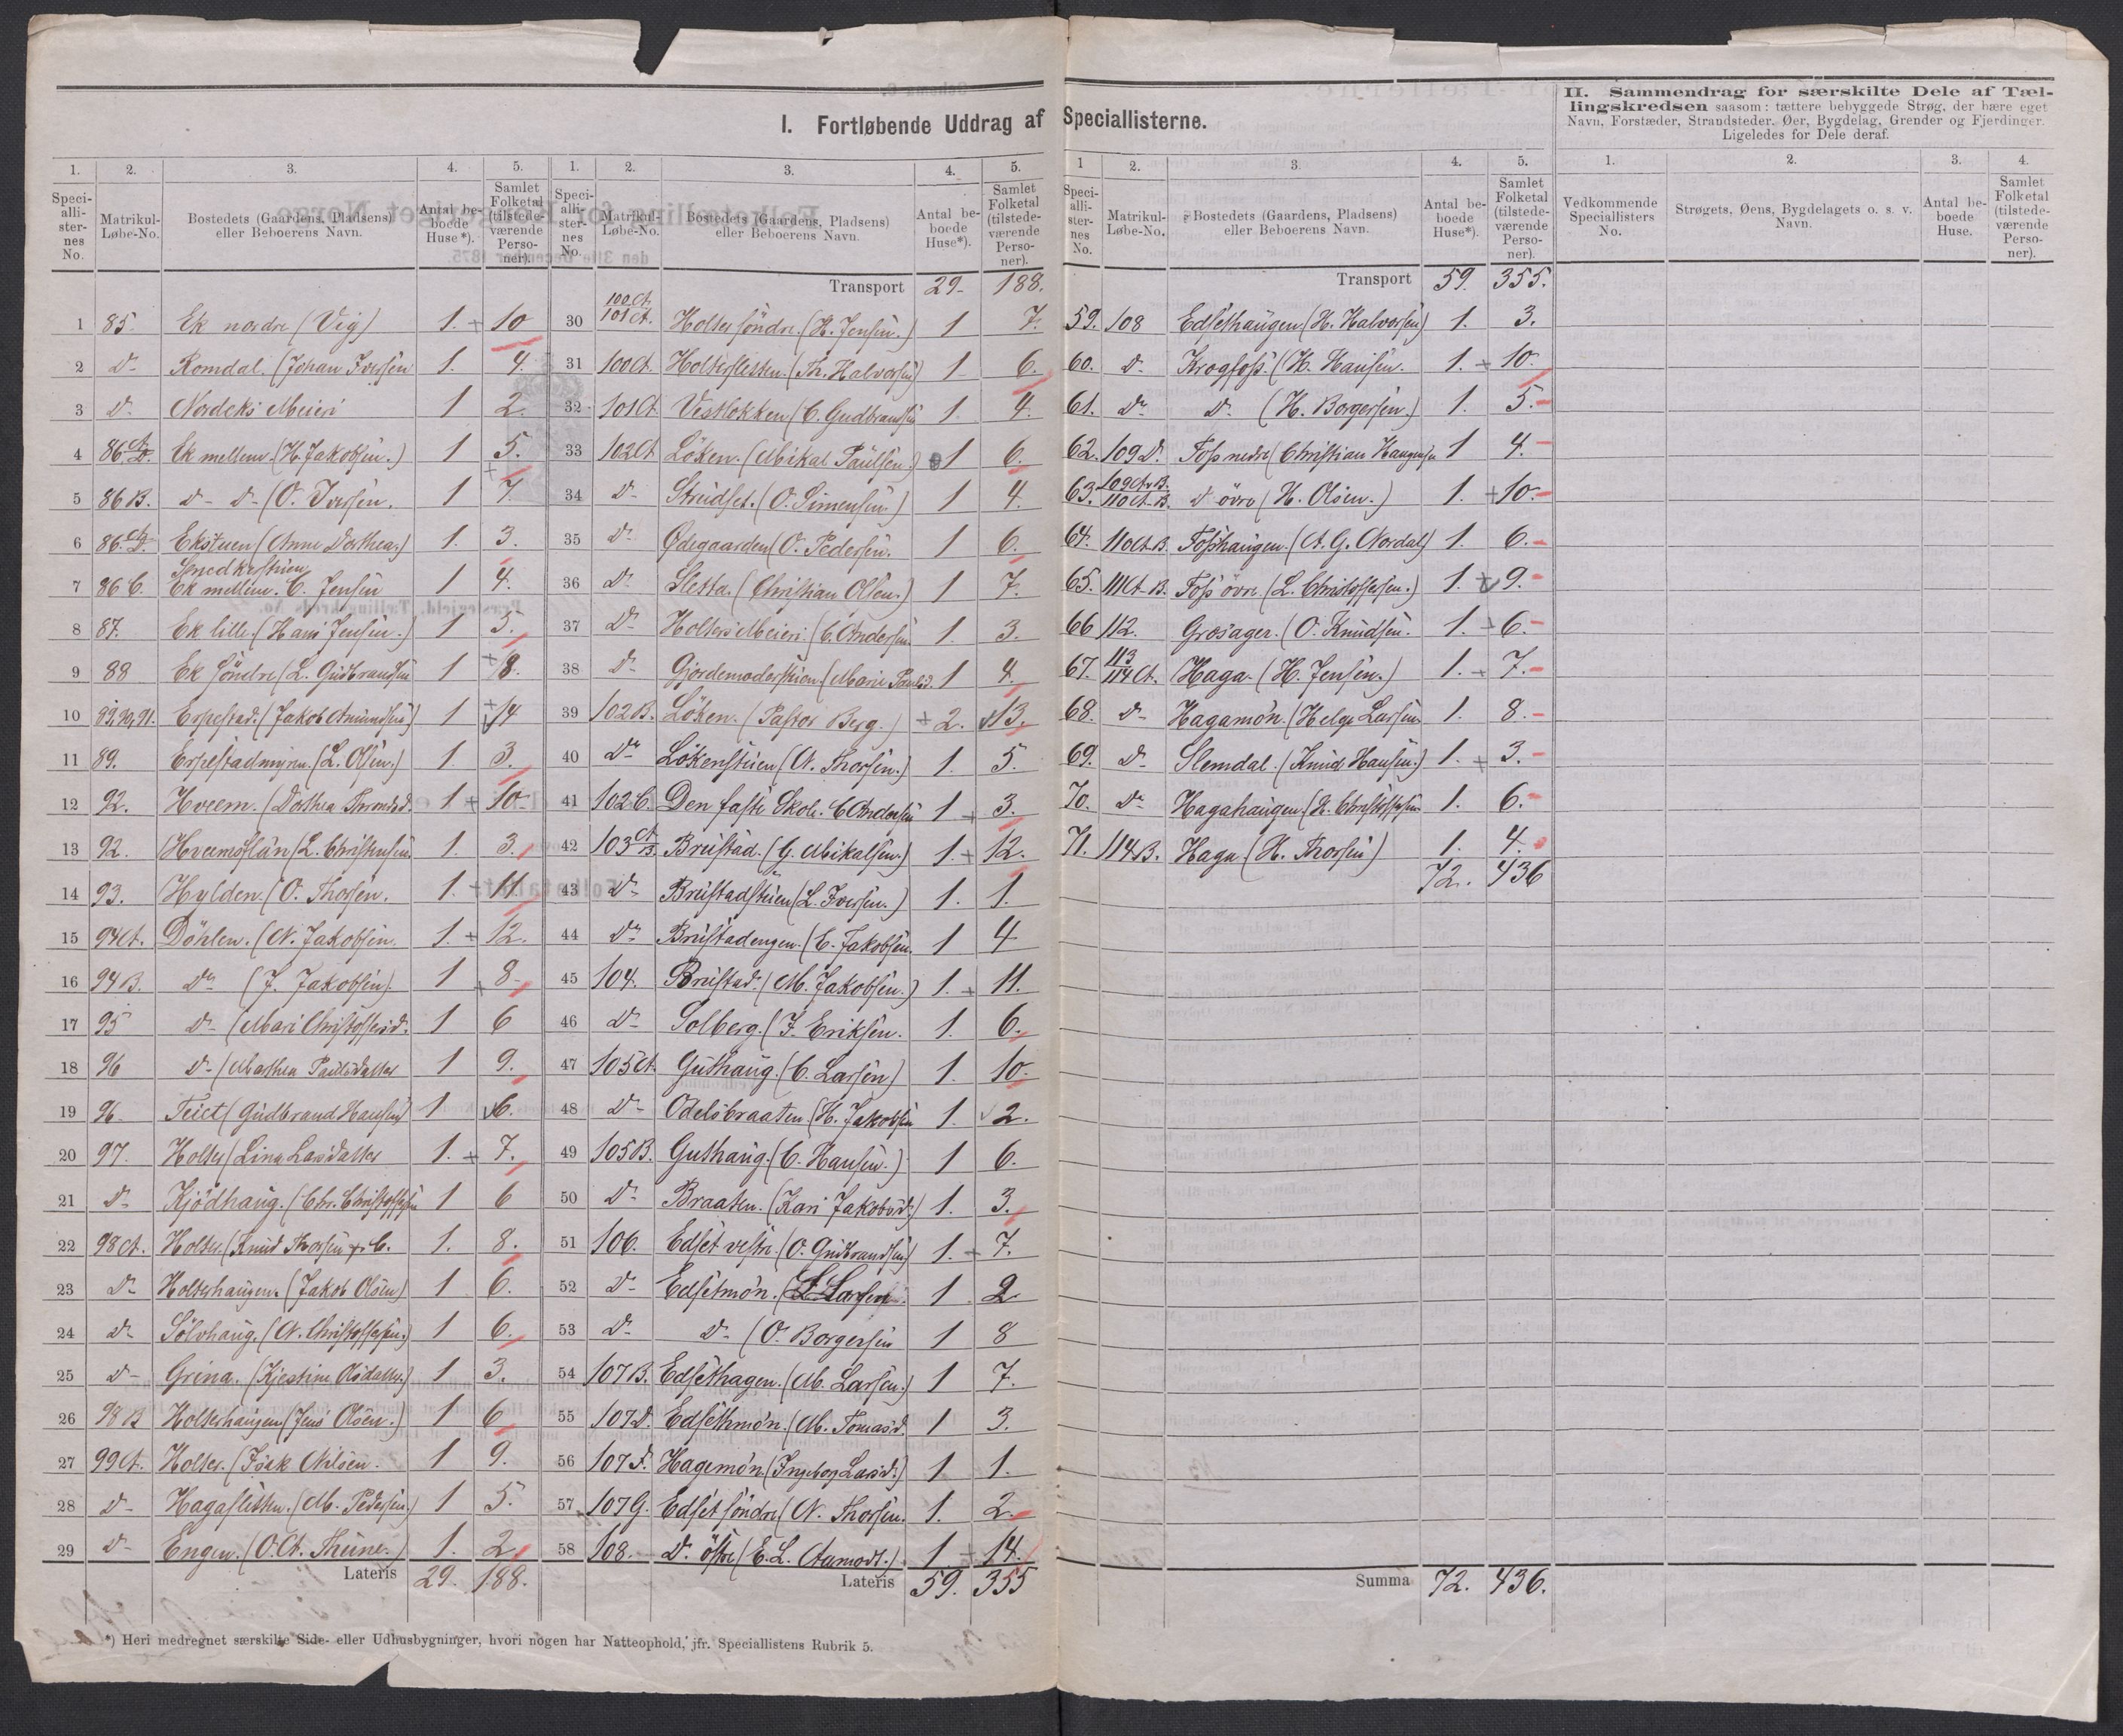 I. Fortløbende Uddrag af Speciallisterne.
II. Sammendrag for særskilte Dele af Tæl-
lingskredsen saasom: tættere bebyggede Strøg, der bære eget
Navn, Forstæder, Strandsteder, Øer, Bygdelag, Grender og Fjerdinger.
Ligeledes for Dele deraf.
1. 2. 3. 4. 5.
Speci-alli-ster-nes No. Matrikul-Løbe-No. Bostedets (Gaardens, Pladsens) eller Beboerens Navn. Antal be-boede Huse*). Samlet Folketal (tilstede-værende Perso-ner).
1 85. Ek nordre (Vig) 1. + 10
2 D- Romdal. (Johan Iversen 1. 4.
3 D- Nordeks Meieri 1 2.
4 86 A/D. Ek mellem. (H. Jakobsen.) 1 5.
5 86 B. D- D- (O. Iversen. 1 7
6 86. A/D. Ekstuen (Anne Dorthea.) 1. 3.
Snedkerstuen
7 86 C. Ek mellem. C. Jensen 1 4.
8 87. Ek lille (Hans Jensen.) 1 5.
9 88 Ek Söndre (L. Gudbrandsen 1 + 8.
10 89, 90, 91. Erpestad. (Jakob Amundsen) 1 14
11 89. Erpestadmyren. (L. Olsen.) 1. 3.
12 92. Hveem. (Dorthea Tronds d. 1 + 10-
13 92. Hveemslån (L. Christensen 1. 3.
14 93. Hylden. (O. Thorsen. 1. + 11
15 94 A. Döhlen. (N. Jakobsen. 1. + 12.
16 94 B. D- (J. Jakobsen). 1 + 8-
17 95 D- (Mari Christoffersd. 1 6
18 96 D- (Mathea Paulsdatter 1 9.
19 96 Teiet (Gudbrand Hansen) 1 6.
20 97. Holter (Lina Larsdatter 1. + 7.
21 D- Kjödhaug. (Chr. Christoffersen 1 6
22 98 A. Holter. (Knud Thorsen + C. 1. 8.
23 D- Holterhaugen. (Jakob Olsen) 1 6.
24 D- Sölvhaug. (N. Christoffersen.) 1 6.
25 D- Grina. (Kjerstine Olsdatter.) 1 3.
26 98 B Holterhaugen (Jens Olsen.) 1 6
27 99 A. Holter. (Isak Nilsen. 1 9.
28 D- Hagasletten. (M. Pedersen.) 1 5.
29 D- Engen. (O. A. Thune.) 1. 2
Lateris 29. 188.
1. 2. 3. 4. 5.
Speci-alli-ster-nes No. Matrikul-Løbe-No. Bostedets (Gaardens, Pladsens) eller Beboerens Navn. Antal be-boede Huse*). Samlet Folketal (tilstede-værende Perso-ner).
Transport 29- 188.
30 100 A. 101 A. Holter söndre. (H. Jensen.) 1 7.
31 100 A. Holtersletten. (Th. Halvorsen) 1 6.
32 101 A Vestlokken (C. Gudbrandsen 1. 4.
33 102 A Löken. (Mikal Paulsen.) 1 6
34 D- Strudset. (O. Simensen) 1 4.
35 D- Ødegaarden (O. Pedersen. 1 6.
36 D- Sletta. (Christian Olsen.) 1 7.
37 D- Holters Meieri. (C. Andersen 1. 3.
38 D- Gjordemoderstuen. (Marie Pauls d. 1 4.
39 102 B. Löken. (Pastor Berg.) + 2. 13.
40 D- Lökenstuen (A. Thorsen.) 1. 5.
41 102 C. Den faste Skole. C. Andersen 1 + 3.
42 103 A/B. Brustad. (G. Mikalsen.) 1. + 12.
43 D- Brustadstuen (L. Iversen.) 1. 1.
44 D- Brustadengen. (E. Jakobsen. 1 4
45 104. Brustad. (M. Jakobsen.) 1. + 11.
46 D- Solberg. (J. Eriksen. 1. 6.
47 105 A. Guthaug. (C. Larsen) 1. 10.
48 D- Odelsbraaten (H. Jakobsen 1. 2.
49 105 B. Guthaug. (C. Hansen.) 1 6.
50 D- Braaten. (Kari Jakobsd.) 1. 3.
51 106. Edset vestre. (O. Gudbrandsen) 1. + 7.
52 D- Edsetmön. (L. Larsen. 1 2
53 D- D- (O. Borgersen 1 8
54 107 B. Edsethagen. (M. Larsen.) 1 7.
55 107 D. Edsethmön. (M. Tomasd. 1 3.
56 107 F. Hagemön. (Ingeborg Larsd.) 1 1.
57 107 G. Edset söndre (N. Thorsen. 1. 2.
58 108. D. östre (E. L. Aamodt.) 1. + 14.
Lateris 59. 355
1 2. 3. 4. 5.
Speci-alli-ster-nes No. Matrikul-Løbe-No. Bostedets (Gaardens, Pladsens) eller Beboerens Navn. Antal be-boede Huse*). Samlet Folketal (tilstede-værende Perso-ner).
Transport 59. 355.
59. 108 Edsethaugen. (H. Halvorsen) 1. 3.
60. D- Krogfoss. (H. Hansen. 1. + 10.
61. D- D- (H. Borgersen.) 1. 5.
62. 109 D. Foss nedre (Christian Haugersen 1 4.
63. 109 A-B. 110 A-B. D övre (H. Olsen.) 1. + 10.
64. 110 A-B. Fosshaugen. (A. G. Nordal) 1. 6.
65. 111 A-B. Foss övre. (L. Christoffersen.) 1. + 9.
66 112. Grosager. (O. Knudsen. 1. + 6.
67. 113 114 A. Haga. (H. Jensen.) 1. + 7.
68. D- Hagamön. (Helge Larsen. 1. 8.
69. D- Slemdal. (Knud Hansen.) 1. + 3.
70. D- Hagahaugen (H. Christoffersen 1. 6.
71. 114 B. Haga (H. Thorsen) 1. 4.
72. 436
Summa 72. 436.
1. 2. 3. 4.
Vedkommende Speciallisters No. Strøgets, Øens, Bygdelagets o. s. v. Navn. Antal be-boede Huse. Samlet Folketal (tilstede-værende Perso-ner).
*) Heri medregnet særskilte Side- eller Udhusbygninger, hvori nogen har Natteophold, jfr. Speciallistens Rubrik 5.